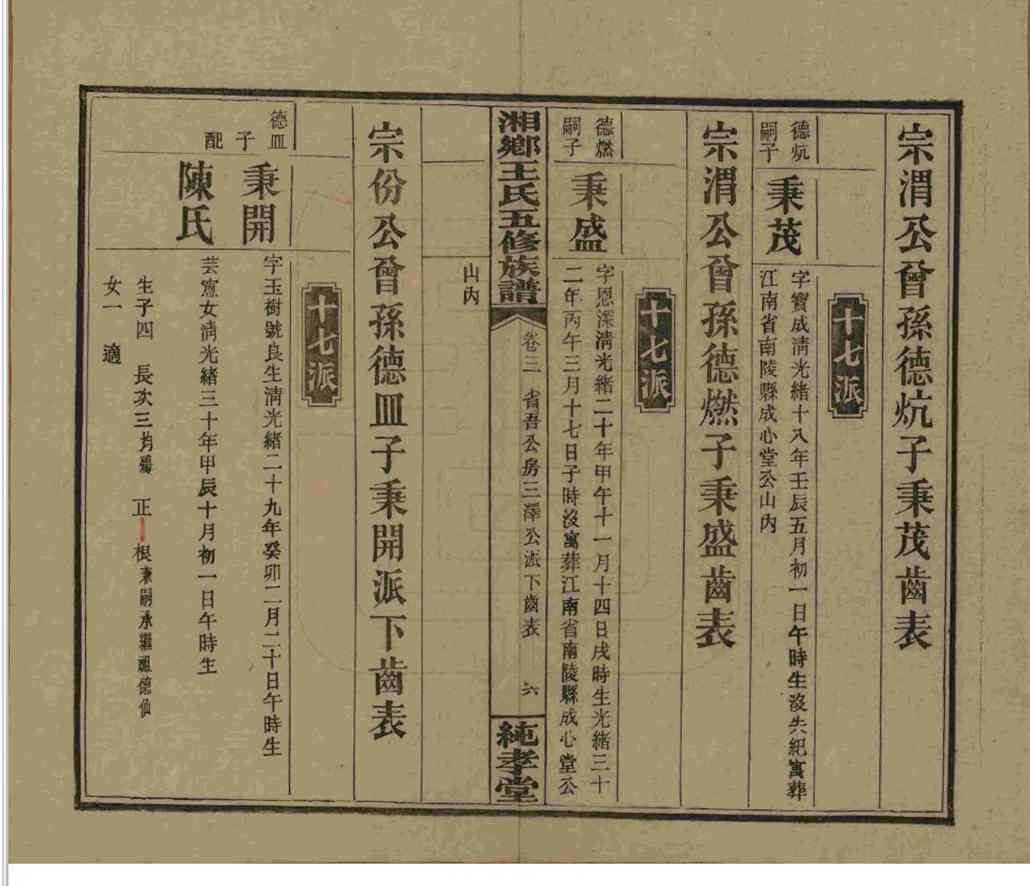 宗渭公曾孫德炕子秉茂齒表
十七派
德炕
嗣子
秉茂
字寶成清光緒十八年壬辰五月初一日午時生沒失紀寓葬
江南省南陵縣成心堂公山內
宗渭公曾孫德燃子秉盛齒表
十七派
德燃
嗣子
秉盛
字恩深清光緒二十年甲午十一月十四日戌時生光緒三十
二年丙午三月十七日子時沒寓葬江南省南陵縣成心堂公
湘鄉王氏五修族譜
卷三
省吾公房三澤公派下齒表
六
純孝堂
山內
宗份公曾孫德皿子秉開派下齒表
十七派
德皿
子
秉開
字玉樹號良生清光緒二十九年癸卯二月二十日午時生
配
陳氏
芸窻女清光緒三十年甲辰十月初一日午時生
生子四 長次三均殤 正根兼嗣承繼祖德仙
女一 適